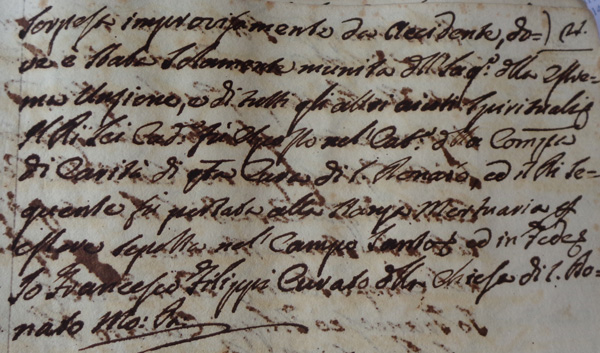 sorpresa improvisamente da Accidente, do-
ve è stata solamente munita dell Sag.º della Estre-
ma Unzione, e di tutti gli altri aiuti Spirituali,
Il di Lei Cad.º fu Esposto nel Cat.º della Comp.ia
di Carità di q̃ta Cura di S. Donato, ed il dì se-
guente fu portata alla Stanza Mortuaria p
essere sepolta nel Campo Santo, ed in Fede
Io Francesco Filippi Curato della Chiesa di S. Do-
nato Mo: Pr.